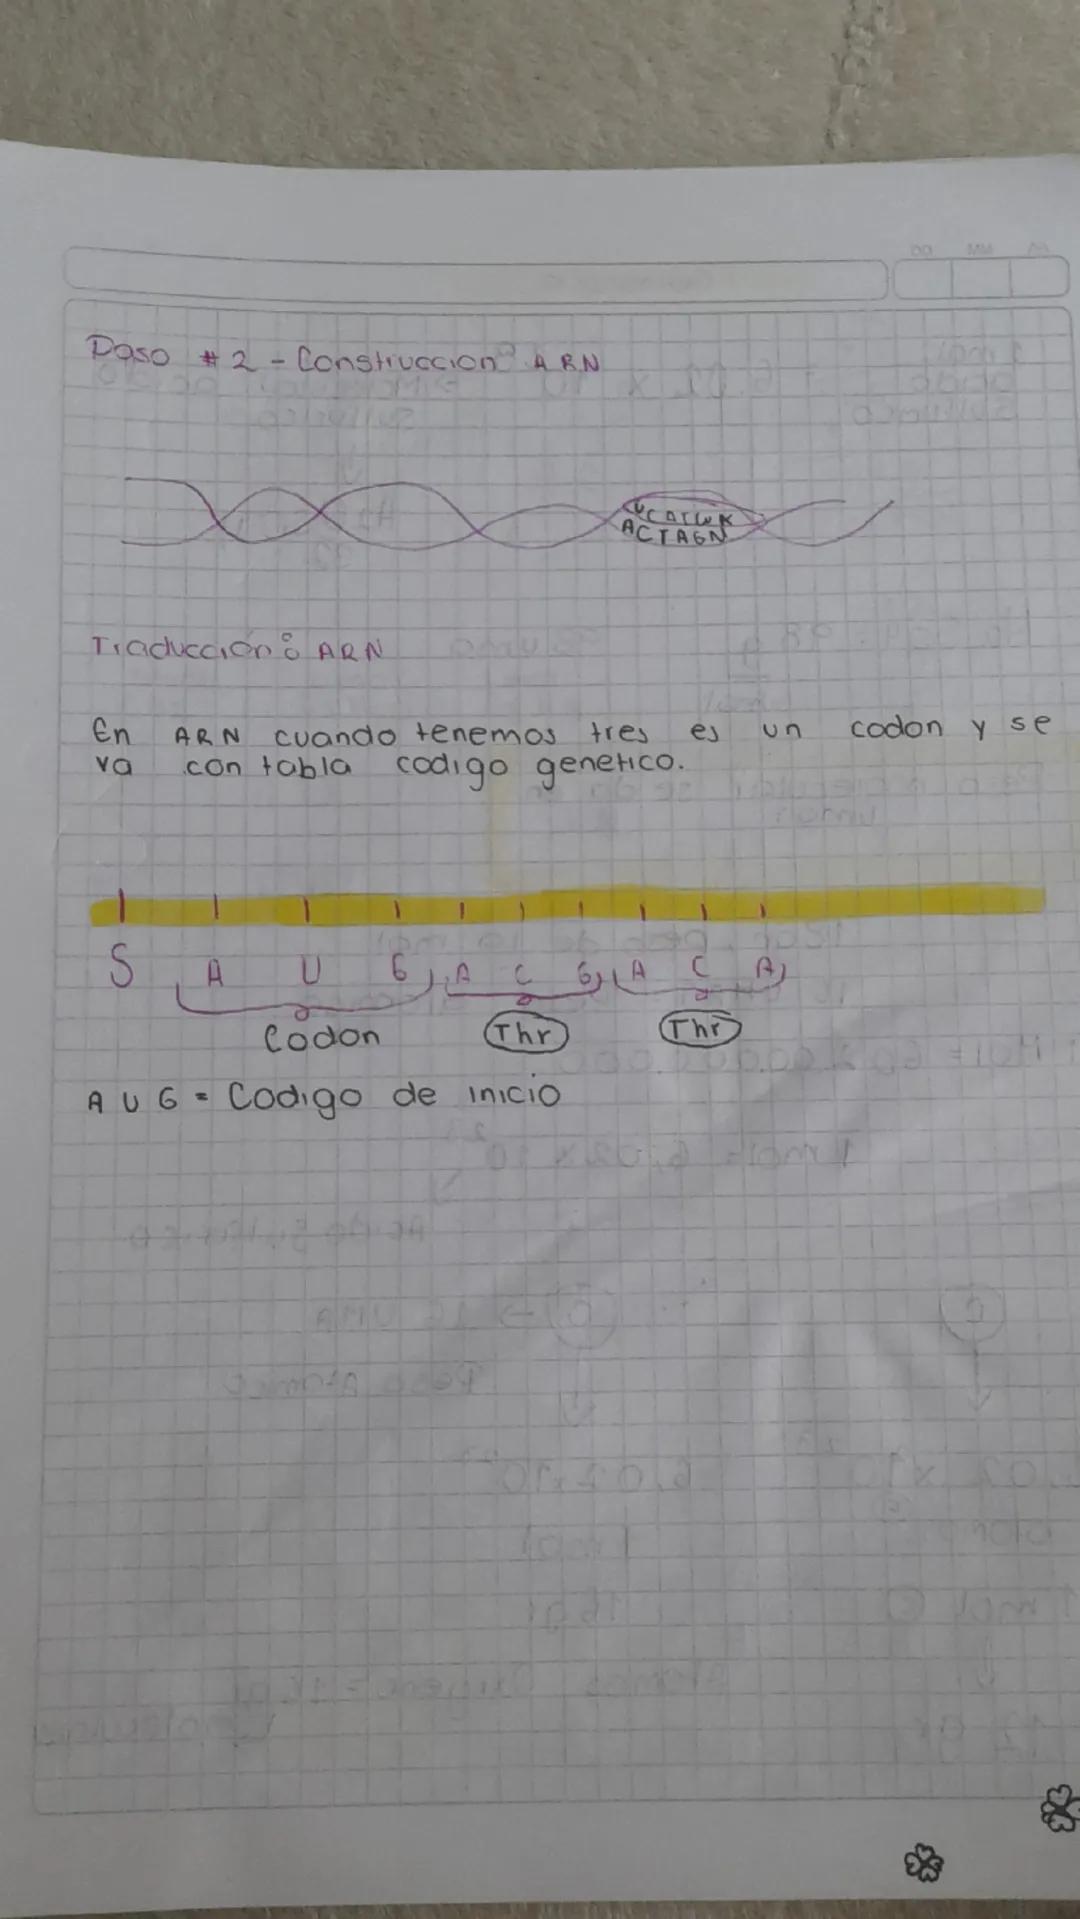 Paso #2 - Construccion ARN
ACTAGN
Traducción: ARN
En ARN cuando tenemos tres es un codon y se
va con tabla codigo genetico.
S A U G A C G A C A
Codon Thr Thr
AUG = Codigo de inicio